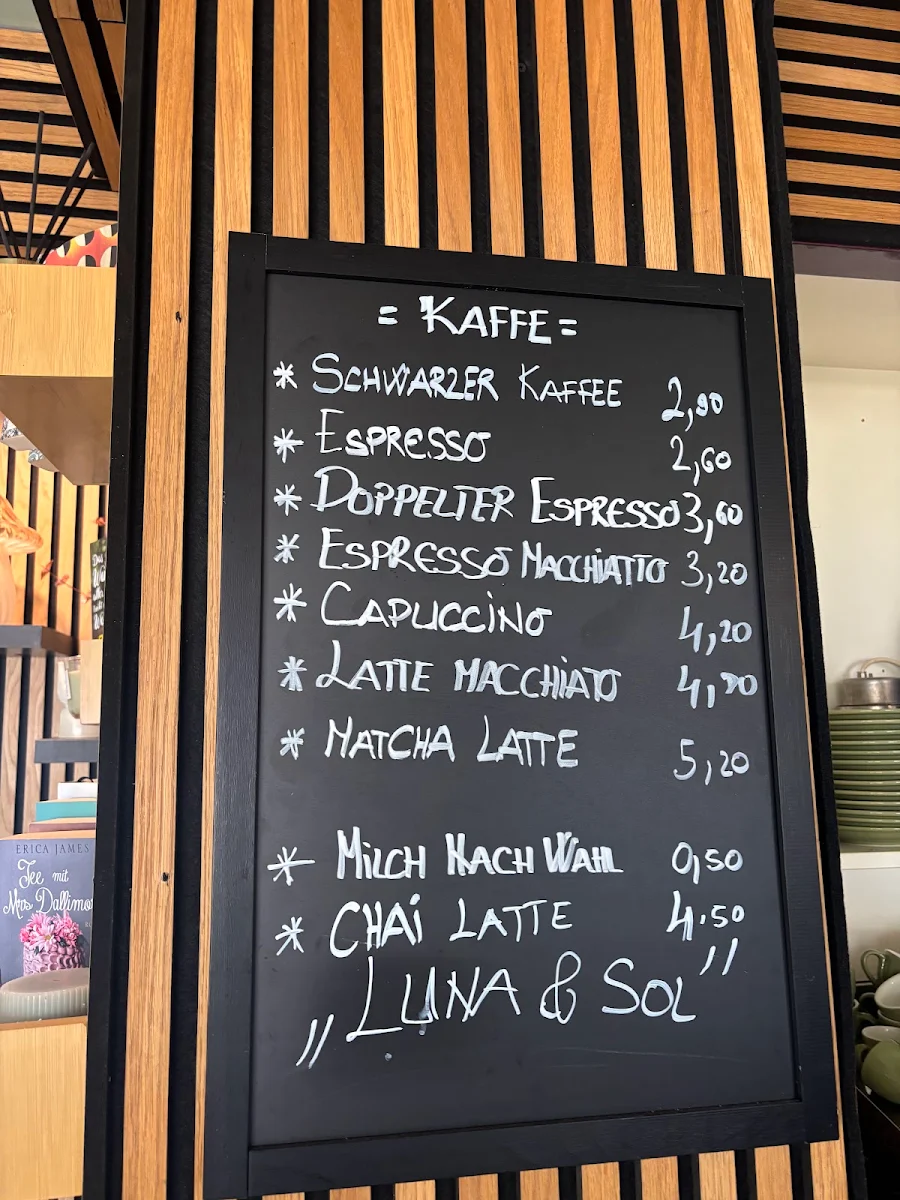 = KAFFE =
* SCHWARZER KAFFEE 2,90
* ESPRESSO 2,60
* DOPPELTER ESPRESSO 3,60
* ESPRESSO MACCHIATTO 3,20
* CAPUCCINO 4,20
* LATTE MACCHIATO 4,90
* MATCHA LATTE 5,20
* MILCH NACH WAHL 0,50
* CHAI LATTE 4.50
„LUNA & SOL”
ERICA JAMES
Tee mit
Mrs Dallimor